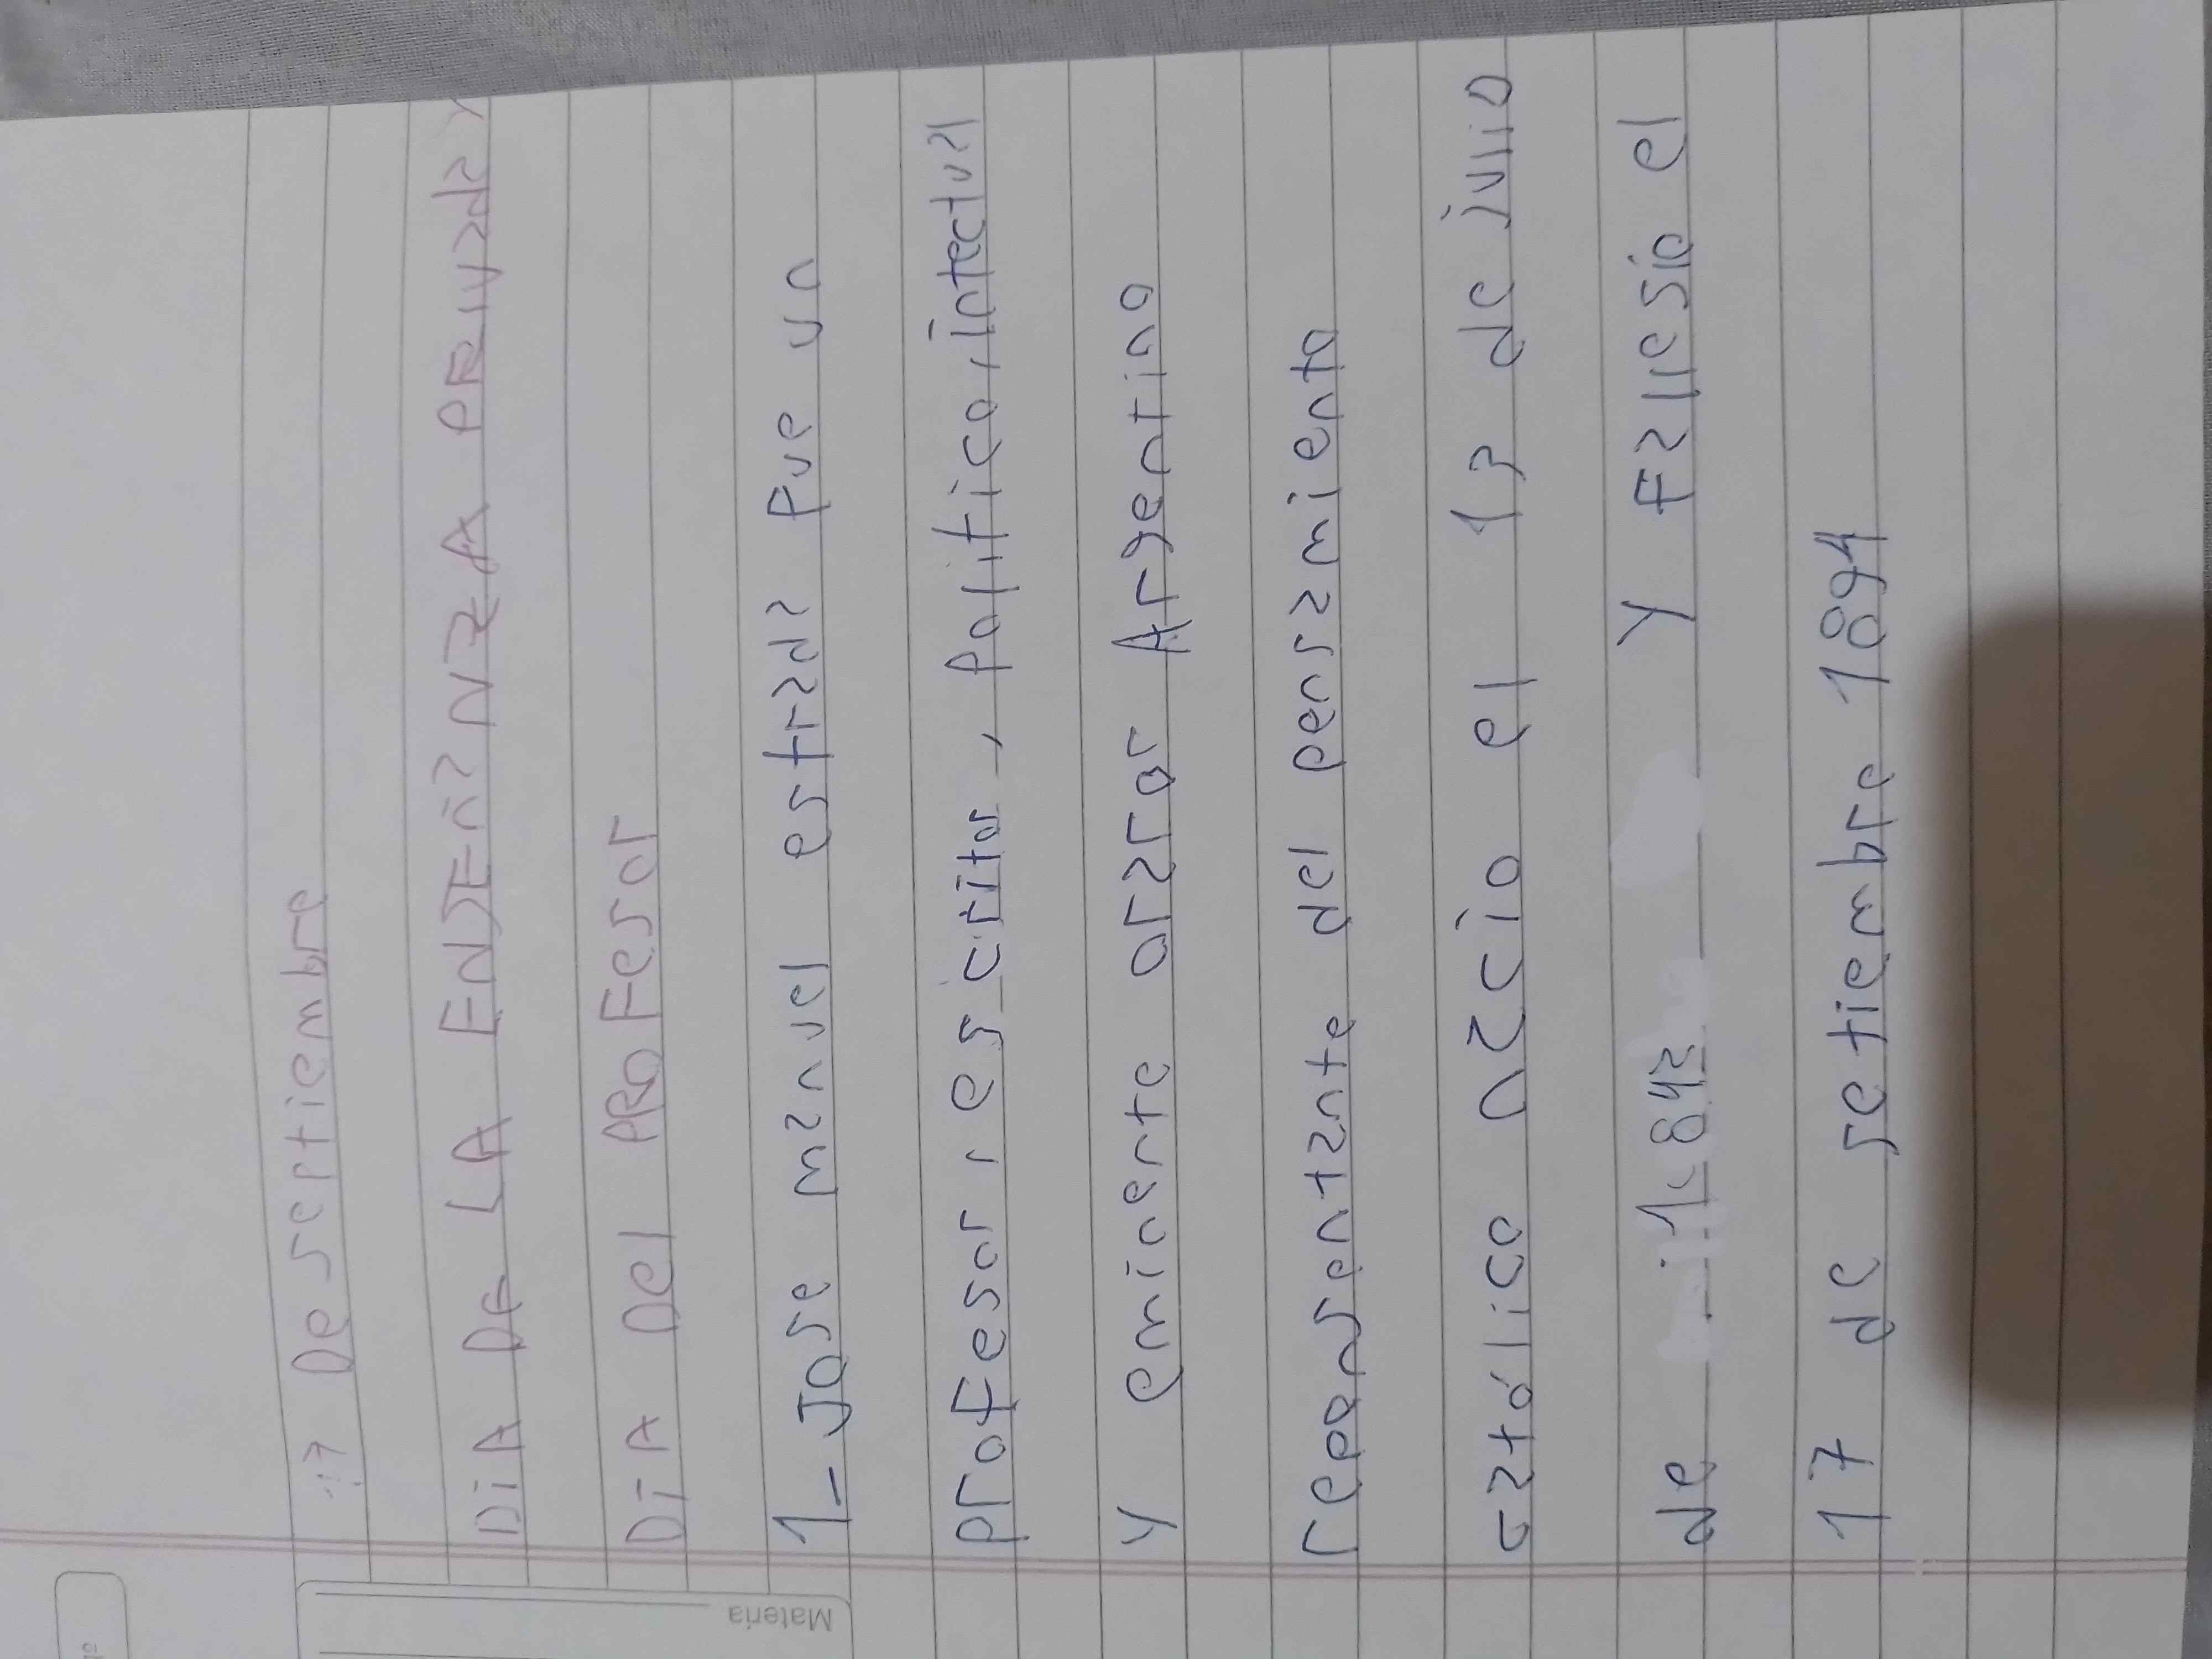 17 De septiembre
DiA De LA ENSEñaNZA PRIVada y
DiA Del PRoFesor
1_ Jose manuel estrada Fue un
profesor, escritor, Politico, intectual
y eminente orador Argentino
repersentante del pensamiento
católico nacio el 13 de julio
de 1.842 y Fallesio el
17 de setiembre 1894
Materia